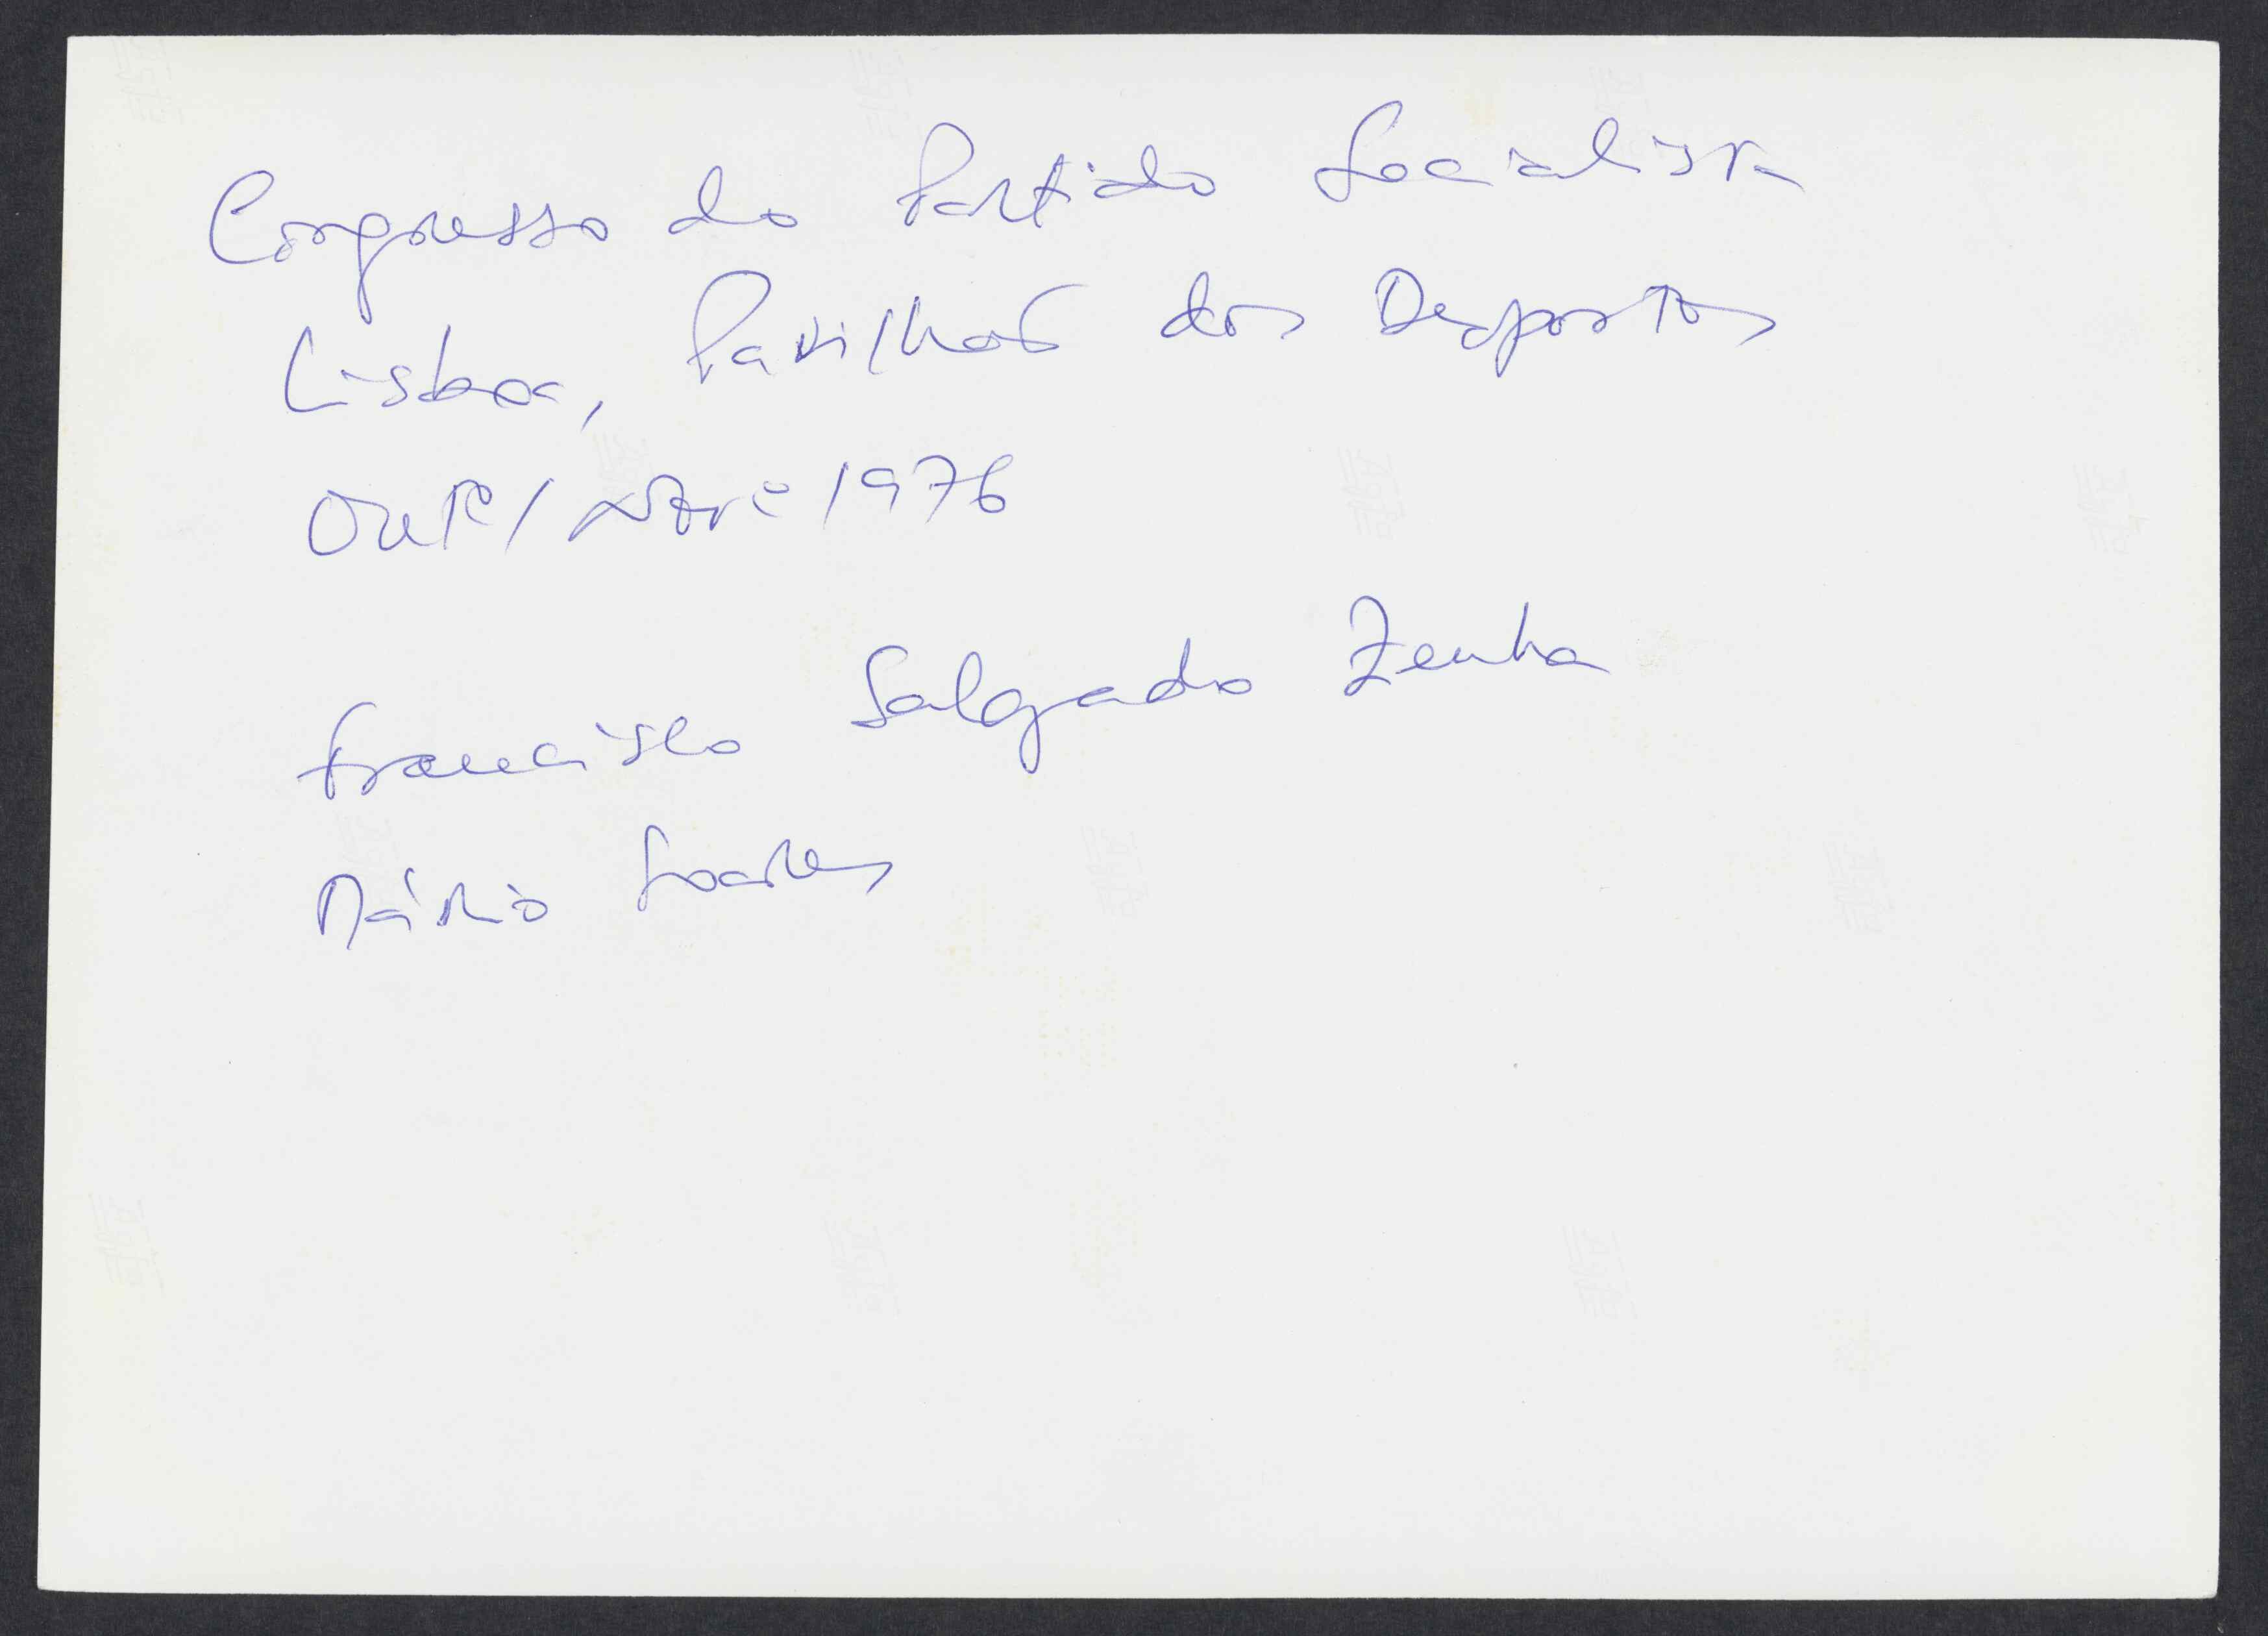 Congresso do Partido Socialista
Lisboa, Pavilhão dos Desportos
Outº/Novº 1976
Francisco Salgado Zenha
Mário Soares